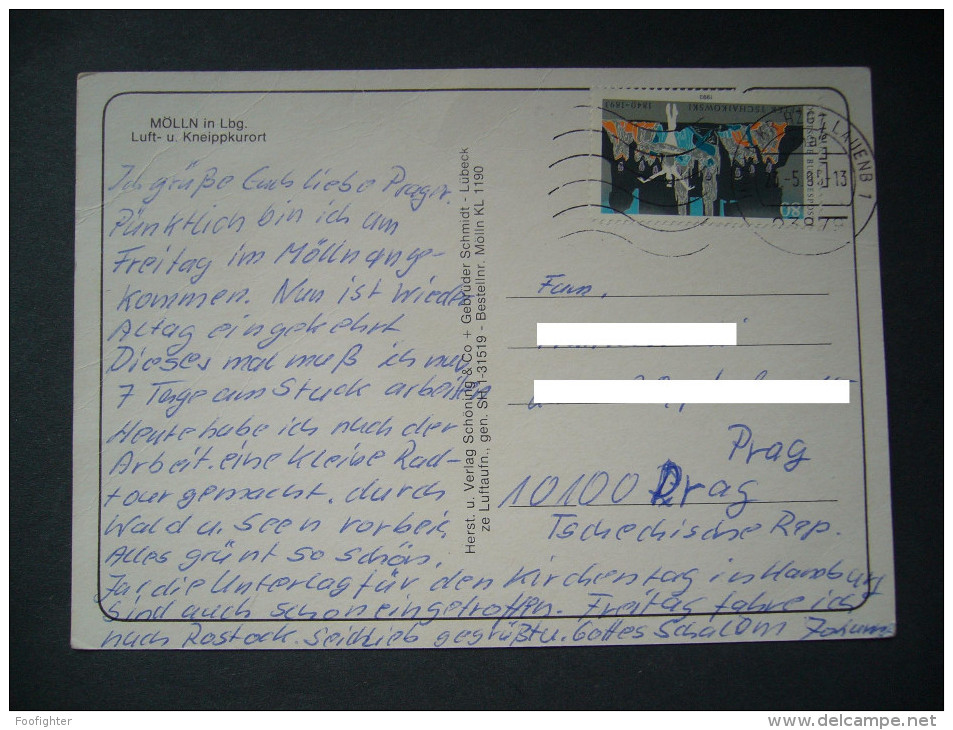 MÖLLN in Lbg.
Luft- u. Kneippkurort
Ich grüße Euch liebe Prager.
Pünktlich bin ich am
Freitag im Mölln ange-
kommen. Nun ist wieder
Altag eingekehrt
Dieses mal muß ich nur
7 Tage am Stück arbeiten
Heute habe ich nach der
Arbeit eine kleine Rad-
tour gemacht, durch
Wald u. Seen vorbei,
Alles grünt so schön.
Ja, die Unterlag für den Kirchentag in Hamburg
sind auch schon eingetroffen. Freitag fahre ich
nach Rostock. Seid lieb gegrüßt u. Gottes Schalom
Herst. u. Verlag Schöning & Co + Gebrüder Schmidt - Lübeck
ze Luftaufn., gen. SH 1-31519 - Bestellnr. Mölln KL 1190
TSCHAIKOWSKI
1840-1893
80
LAUENB 1
Fam.
Prag
10100 Prag
Tschechische Rep.
Foofighter
www.delcampe.net